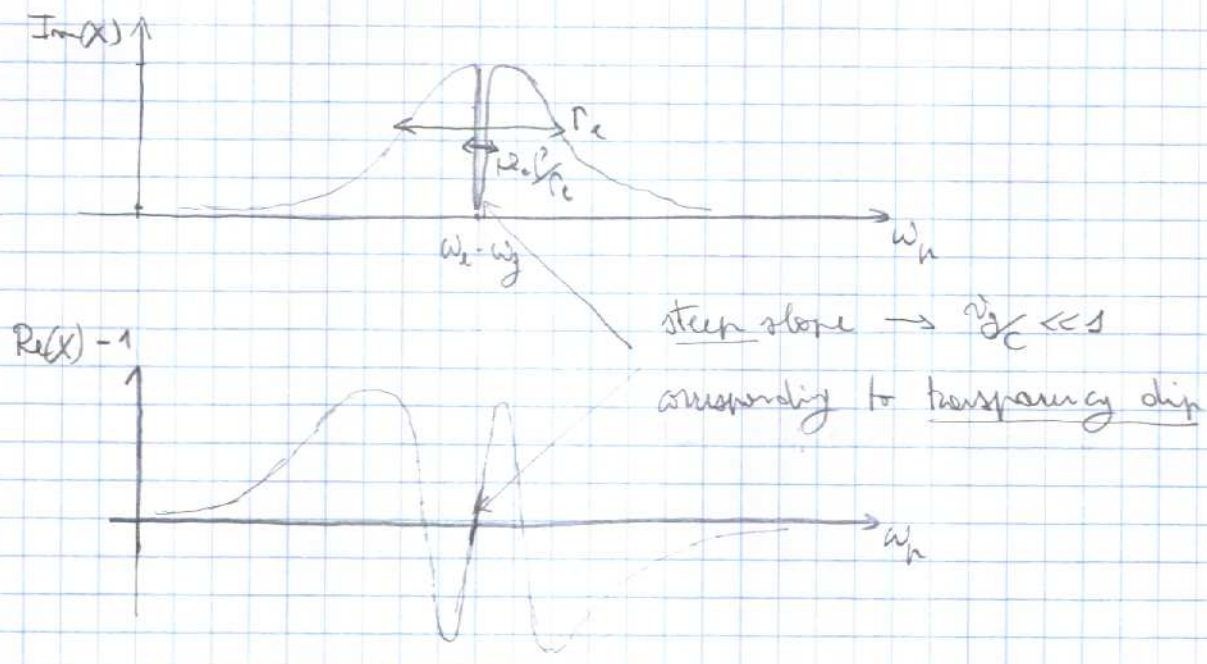 Im(χ)
Γe
Ωc²/Γe
ωe - ωg
ωp
steep slope → vg/c << 1
Re(χ) - 1
corresponding to transparency dip
ωp